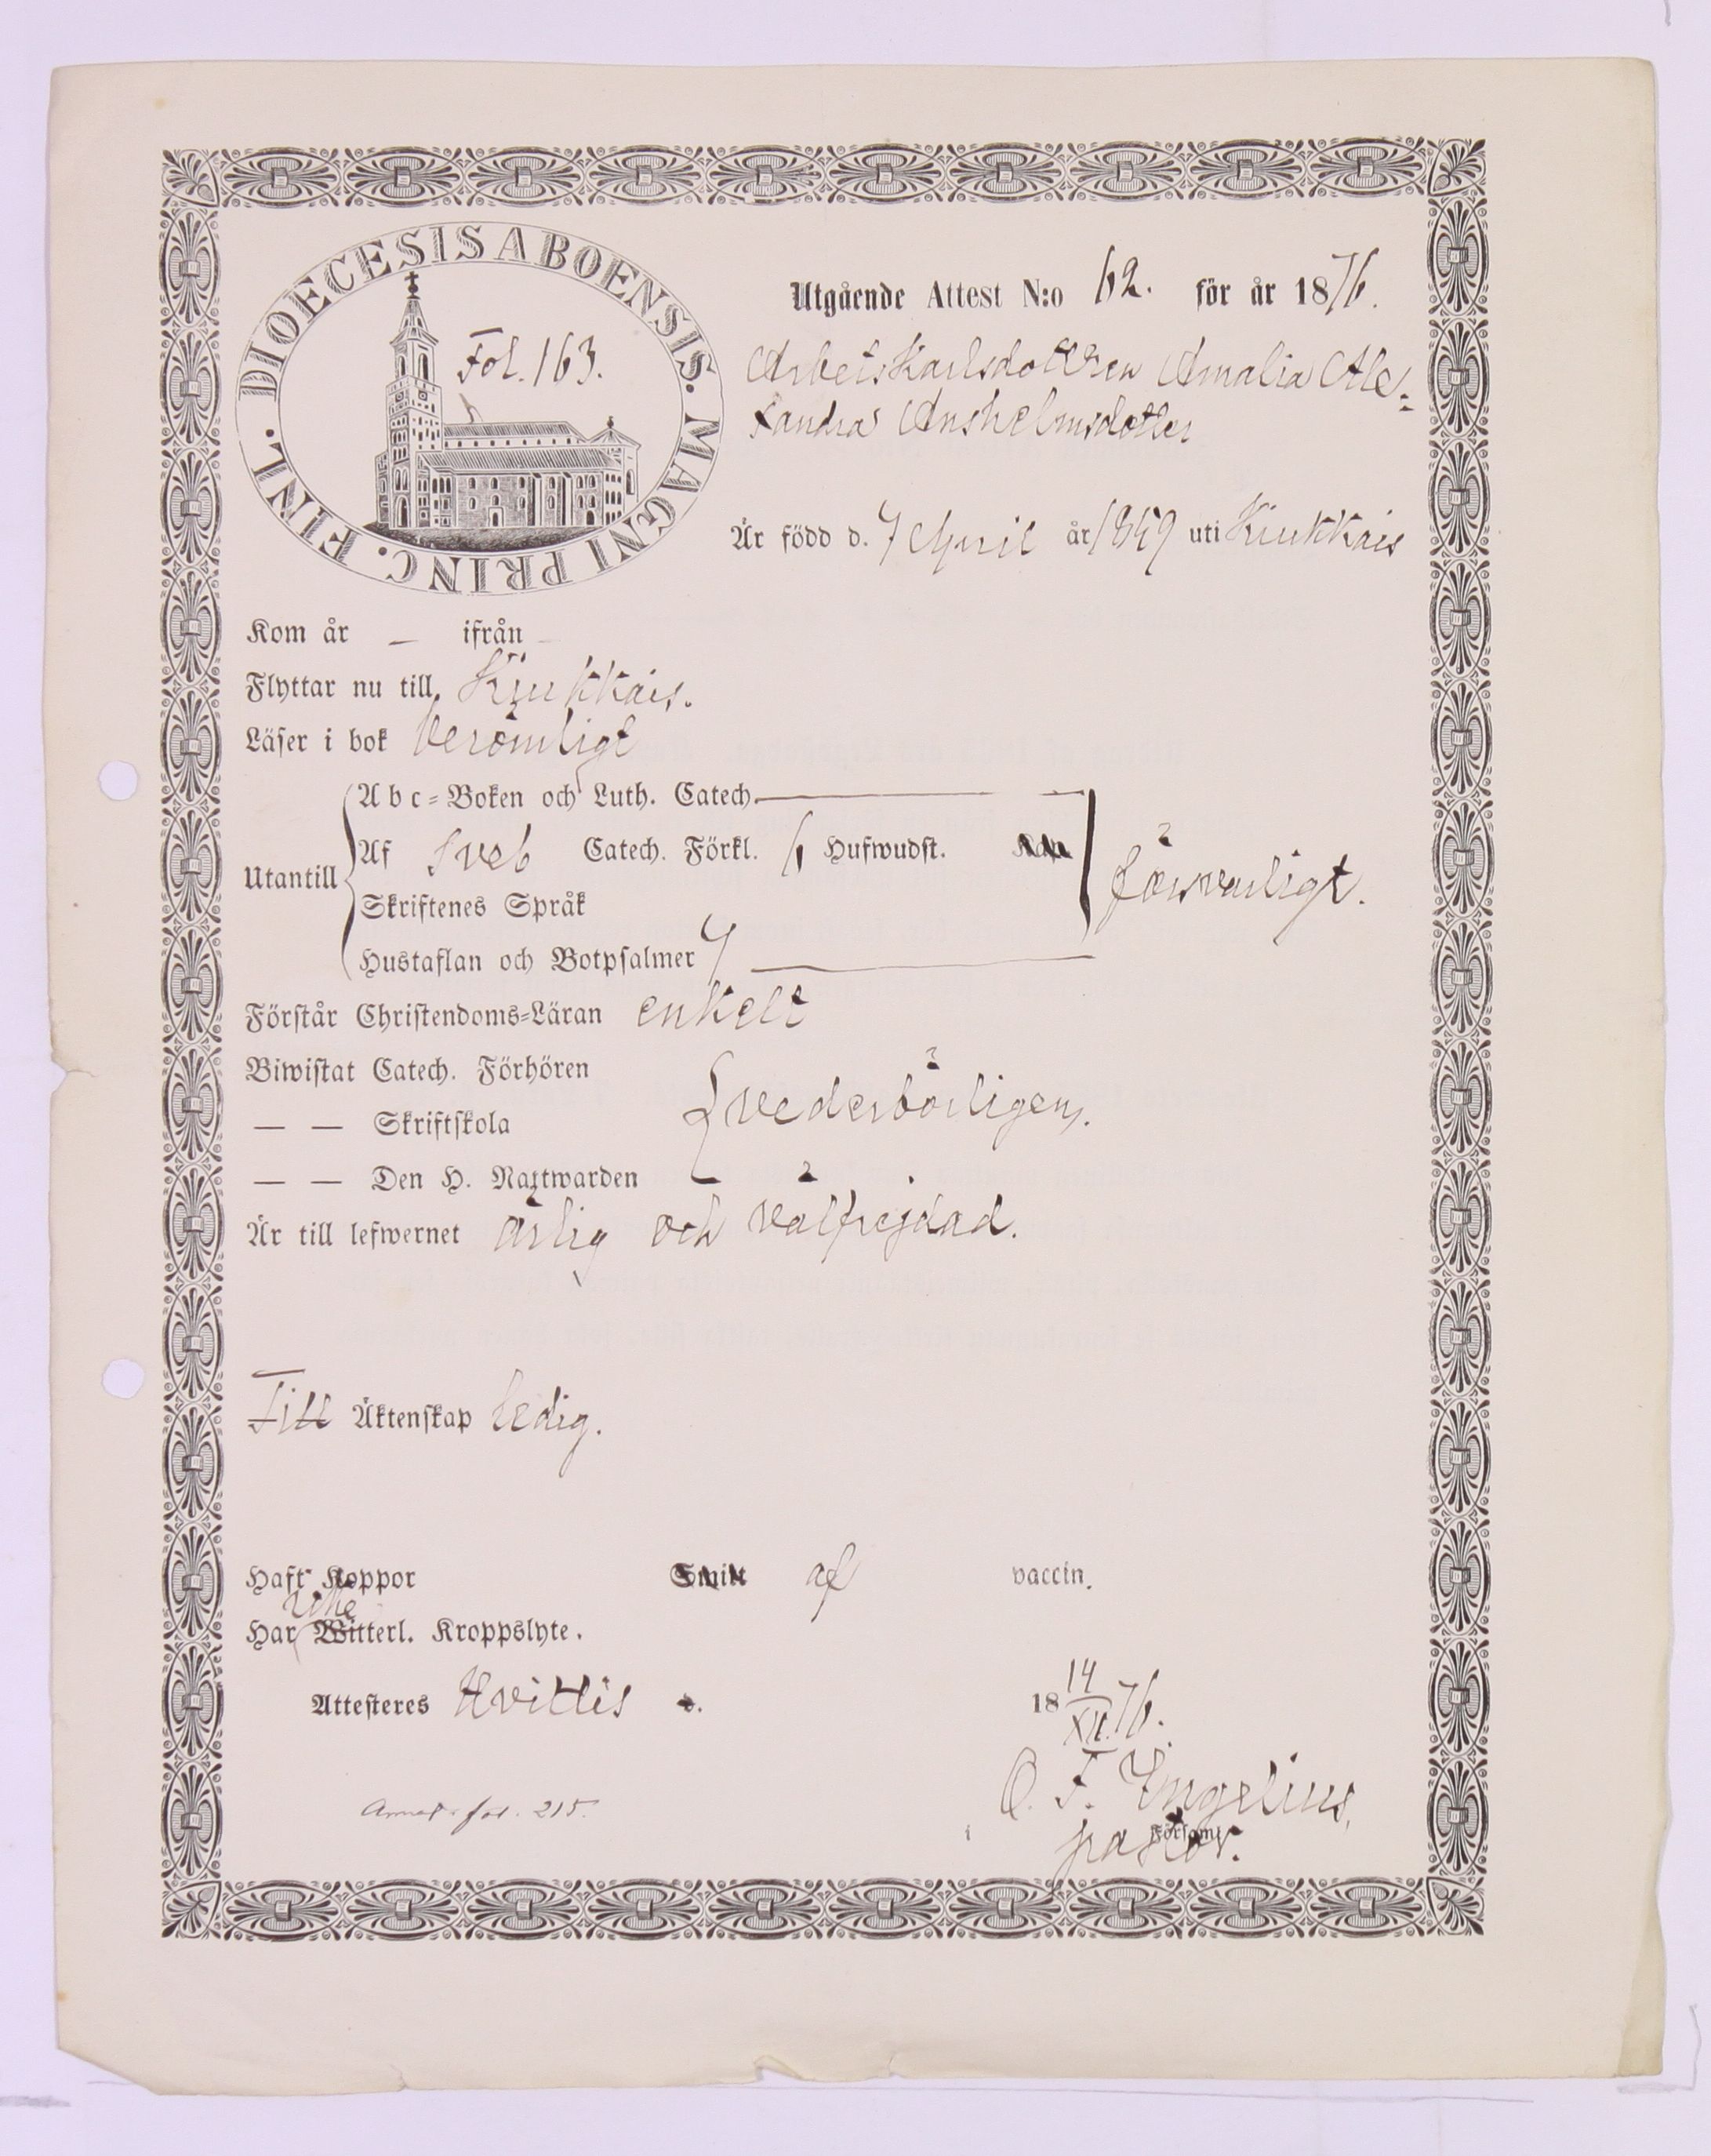 DIOECESIS ABOENSIS. MAGNI PRINC. FINL.
Fol. 163.
Utgående Attest N:o 62. för år 1876.
Arbetskarlsdottren Amalia Ale-
xandra Anshelmsdotter
Är född d. 7 April år 1859 uti Kiukkais
Kom år — ifrån —
Flyttar nu till Kiukkais.
Läser i bok berömligt
Utantill
Abc-Boken och Luth. Catech.
Af Sveb Catech. Förkl. 6 Hufwudst.
försvarligt.
Skriftenes Språk
Hustaflan och Botpsalmer 7
Förstår Christendoms-Läran enkelt
Biwistat Catech. Förhören
— — Skriftskola
vederbörligen.
— — Den H. Nattwarden
Är till lefwernet ärlig och välfrejdad.
Till Äktenskap ledig.
Haft Koppor Smitt af vaccin.
Har icke Witterl. Kroppslyte.
Attesteres Hvittis d. 18 14/XII 76.
O. F. Yngelius,
pastor.
i Församl.
fol. 215.